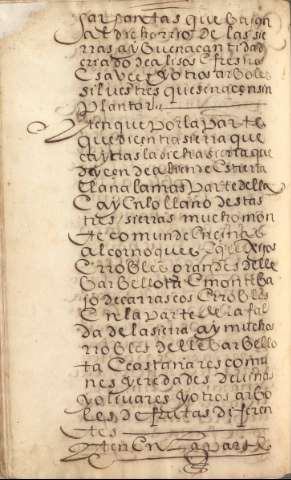 gargantas que bajan
al dicho rrio de las sie
rras ay buena cantidad
criado de alisos e fresnos
e sauces y otros arboles
silvestres que se naçen sin
plantar
Yten que por la parte
que dicen tra sierra que
cay tras la dicha sierra que
deçeen de alli en
llana la mas parte della
e ay en lo llano destas
tres sierras mucho mon
te comun de encinas
alcornoques e quexigos
e rrobles grandes de lle
bar bellota e monte ba
jo de carrascos e rrobles
e en la parte de la fal
da de la sierra ay muchos
rrobles de llebar bello
ta e castañares comu
nes y eredades de viñas
y olivares y otros arbo
les de frutas diferen
tes
Yten en la parte